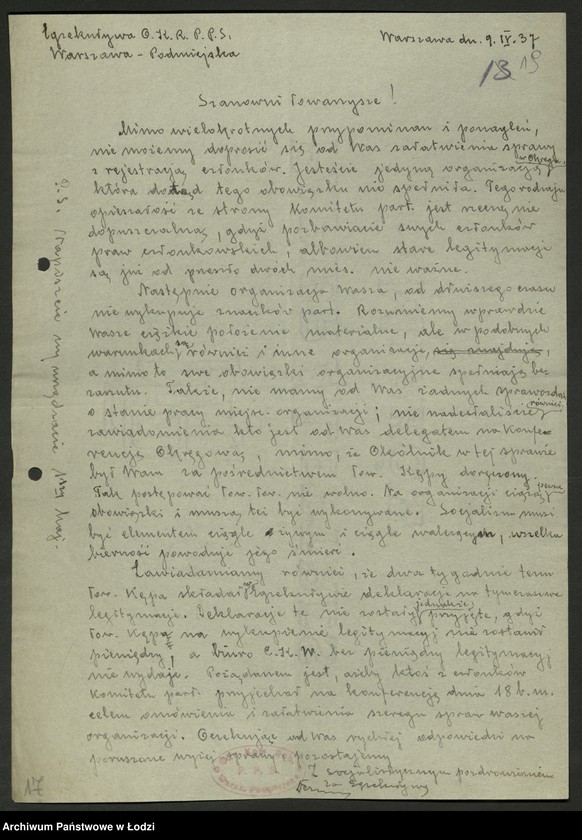 Egzekutywa O.K.R. P.P.S.
Warszawa - Podmiejska
Warszawa dn. 9.IV.37
13 19
Szanowni Towarzysze!
Mimo wielokrotnych przypominań i ponagleń,
nie możemy doprosić się od Was załatwienia sprawy
z rejestracją członków. Jesteście jedyną organizacją w Okręgu,
która dotąd tego obowiązku nie spełniła. Tego rodzaju
opieszałość ze strony Komitetu part. jest rzeczą nie
dopuszczalną, gdyż pozbawiacie swych członków
praw członkowskich, albowiem stare legitymacje
są już od przeszło dwóch mies. nie ważne.
Następnie organizacja Wasza, od dłuższego czasu
nie wykupuje znaczków part. Rozumiemy wprawdzie
Wasze ciężkie położenie materialne, ale w podobnych
warunkach są również i inne organizacje, się znajdują,
a mimo to swe obowiązki organizacyjne spełniają bez
zarzutu. Także, nie mamy od Was żadnych sprawozdań
o stanie pracy miejsc. organizacji; nie nadesłaliście również
zawiadomienia kto jest od Was delegatem na Konfe-
rencję Okręgową, mimo, że Okólnik w tej sprawie
był Wam za pośrednictwem tow. Kępy doręczony.
Tak postępować Tow. Tow. nie wolno. Na organizacji ciążą
obowiązki i muszą też być wykonywane. Socjalizm musi
być elementem ciągle żywym i ciągle walczącym, wszelka
bierność powoduje jego śmierć.
Zawiadamiamy również, że dwa tygodnie temu
tow. Kępa składał w Egzekutywie deklaracje na tymczasowe
legitymacje. Deklaracje te nie zostały jednakże przyjęte, gdyż
tow. Kępa na wykupienie legitymacyj nie zostawił
pieniędzy, a biuro C.K.W. bez pieniędzy legitymacyj
nie wydaje. Pożądanem jest, ażeby ktoś z członków
Komitetu part. przyjechał na konferencję dnia 18 b.m.
celem omówienia i załatwienia szeregu spraw waszej
organizacji. Oczekując od Was rychłej odpowiedzi na
poruszone wyżej sprawy pozostajemy
Z socjalistycznym pozdrowieniem
za Egzekutywę
P.S. Napiszcie czy urządzacie 1szy Maj.
17
Archiwum Państwowe w Łodzi
units.genealogiawarchiwach.pl